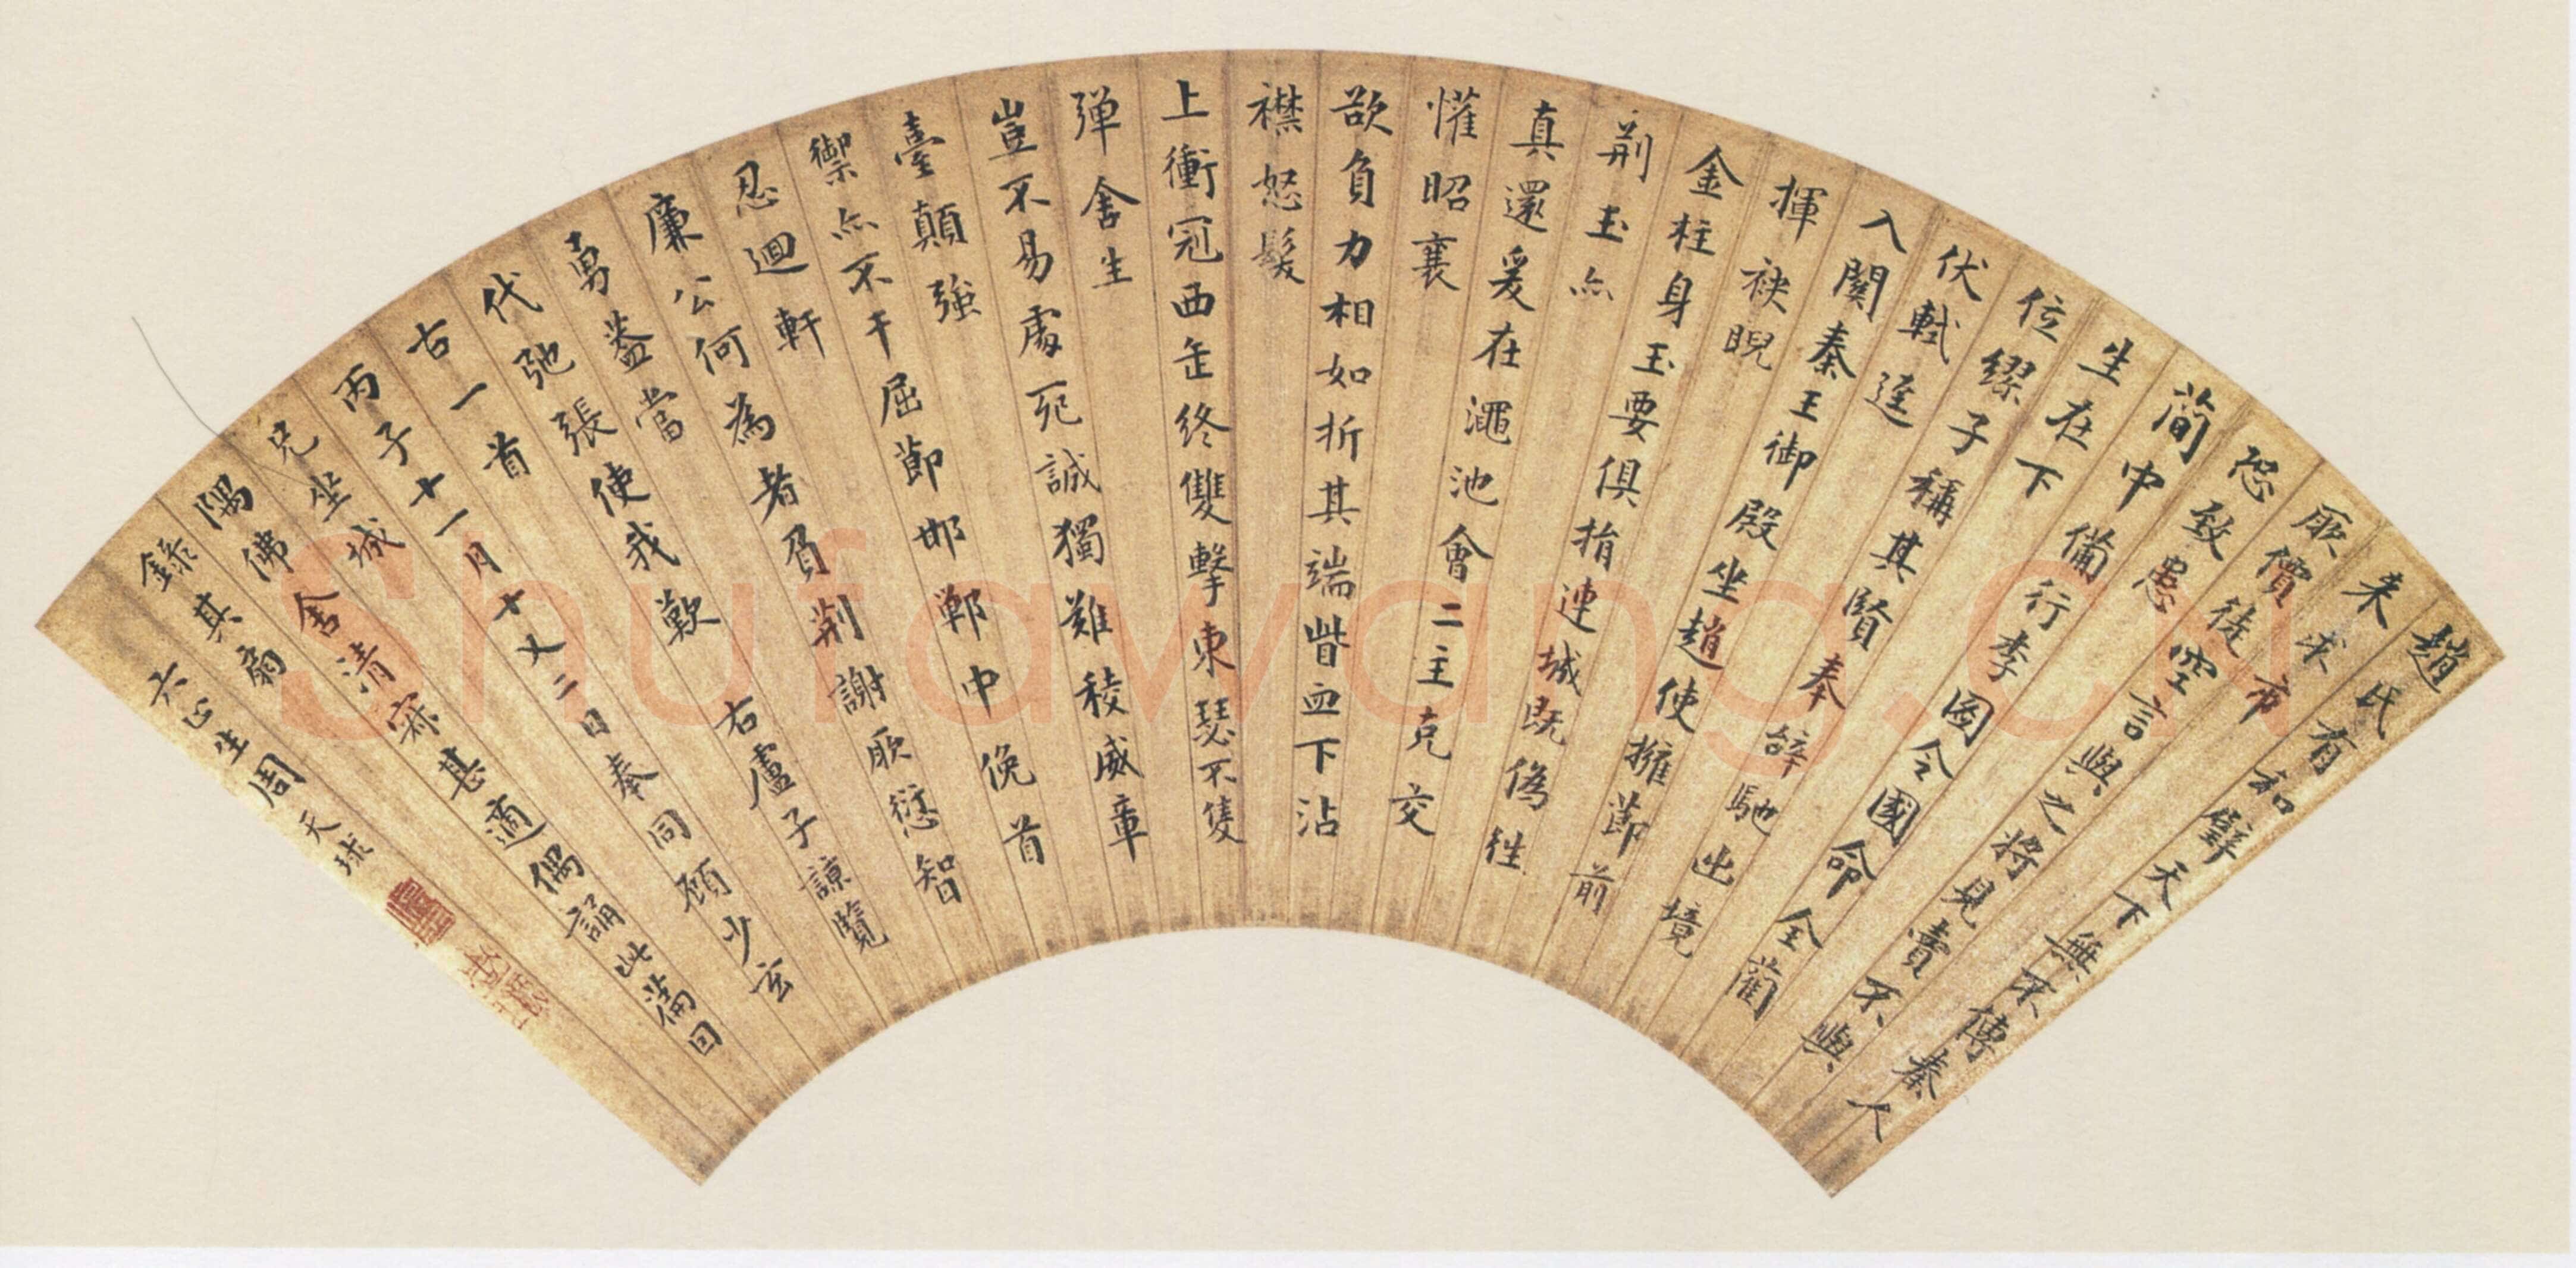 趙氏有和璧天下無不傳秦人
来求市
厥價徒空言與之將見賣不與
恐致患
簡中備行李圖令國命全藺
生在下
位繆子稱其賢奉辭馳出境
伏軾逕
入關秦王御殿坐趙使擁節前
揮袂睨
金柱身玉要俱捐連城既偽往
荊玉亦
真還爰在澠池會二主克交
懽昭襄
欲負力相如折其端眥血下沾
襟怒髮
上衝冠西缶終雙擊東瑟不隻
彈舍生
豈不易處死誠獨難稜威章
臺顛強
禦亦不干屈節邯鄲中俛首
忍迴軒
廉公何為者負荊謝厥愆智
勇蓋當
代弛張使我歎 右盧子諒覽
古一首
丙子十一月十又二日奉同顧少玄
兄坐城
隅佛舍清寂甚適偶誦此篇回
錄其扇
六止生周天球
Shufawang.cn